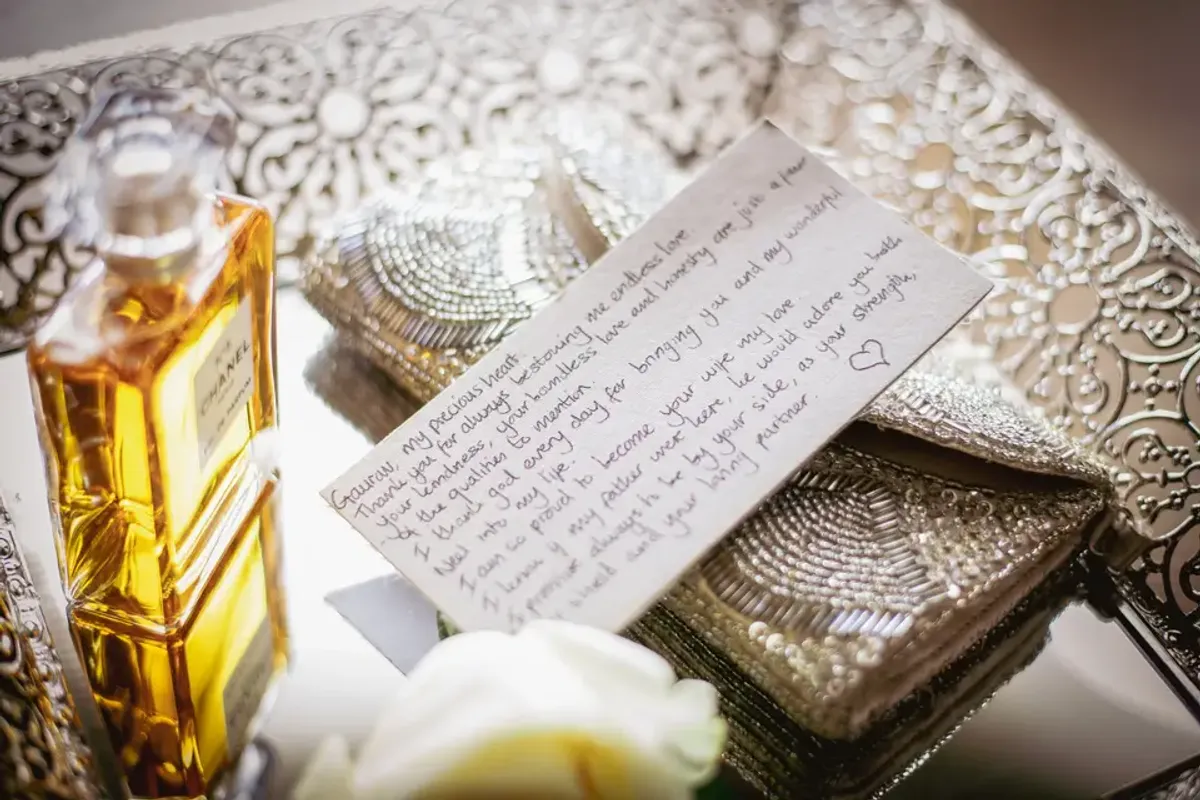 Gaurav, my precious heart.
Thank you for always bestowing me endless love.
your kindness, your boundless love and honesty are just a few
of the qualities to mention.
I thank god every day for bringing you and my wonderful
Neel into my life.
I am so proud to become your wife my love.
I know if my father were here, he would adore you both
I promise always to be by your side, as your strength,
and your loving partner.
N°5
CHANEL